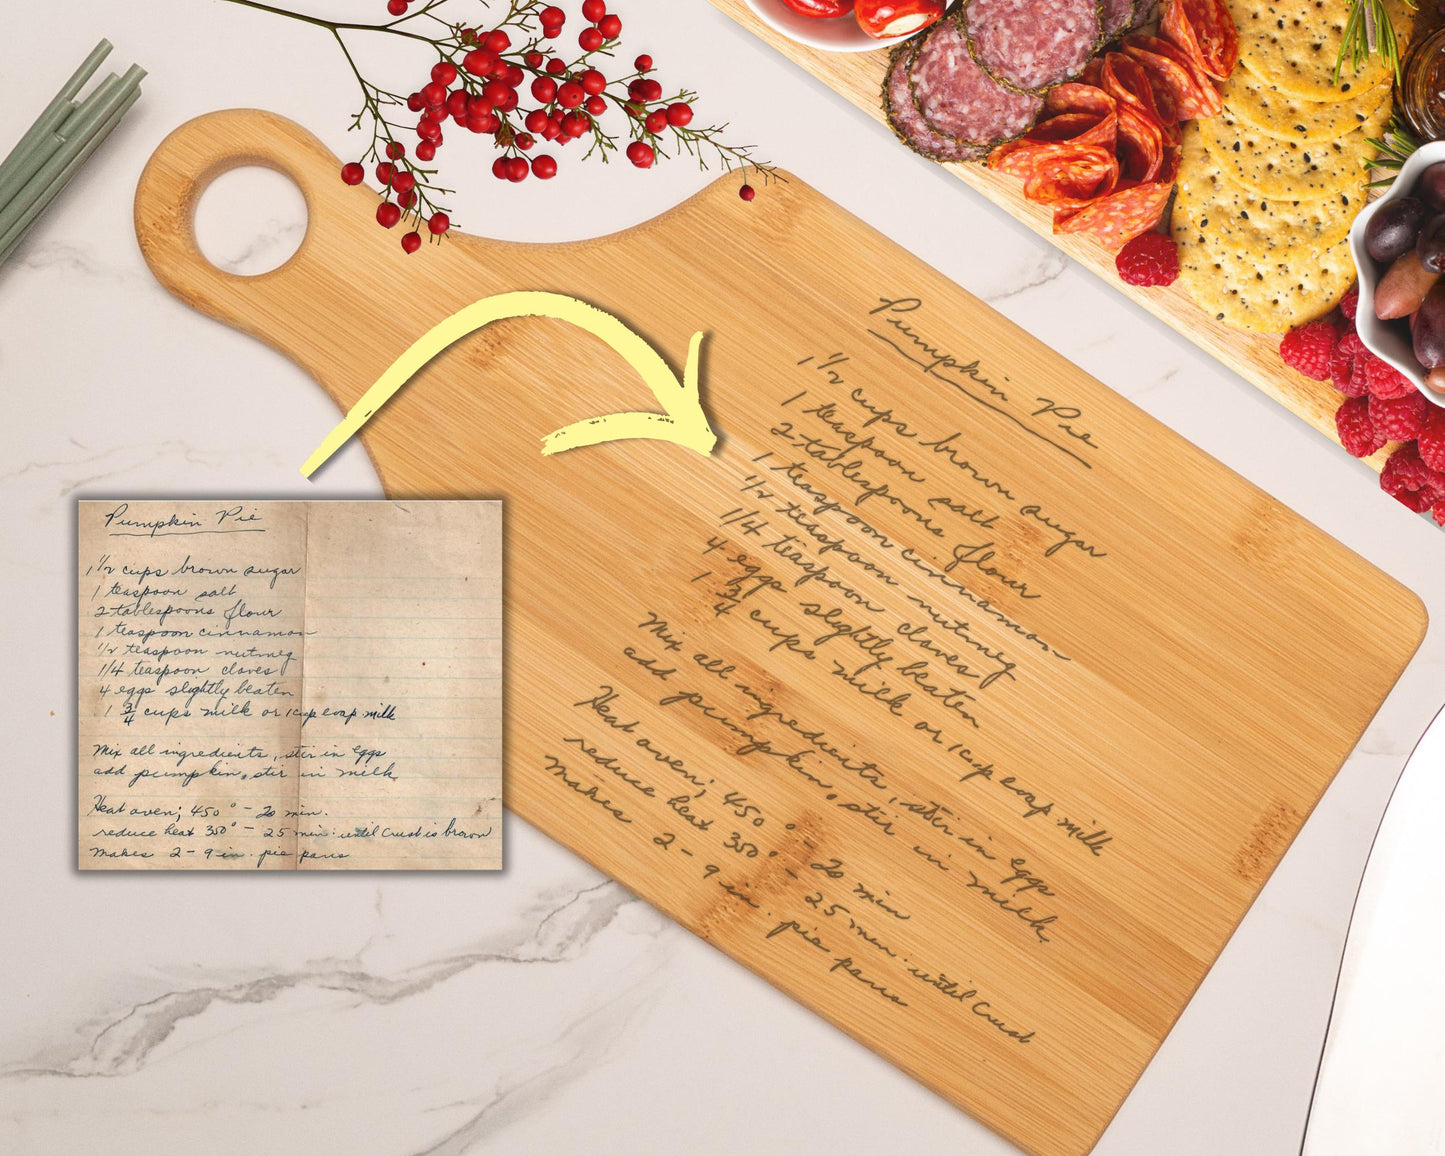 Pumpkin Pie
1 1/2 cups brown sugar
1 teaspoon salt
2 tablespoons flour
1 teaspoon cinnamon
1/2 teaspoon nutmeg
1/4 teaspoon cloves
4 eggs slightly beaten
1 3/4 cups milk or 1 cup evap milk
Mix all ingredients, stir in eggs
add pumpkin, stir in milk
Heat oven; 450° - 20 min.
reduce heat 350° - 25 min. until Crust is brown
Makes 2 - 9 in. pie pans
Pumpkin Pie
1 1/2 cups brown sugar
1 teaspoon salt
2 tablespoons flour
1 teaspoon cinnamon
1/2 teaspoon nutmeg
1/4 teaspoon cloves
4 eggs slightly beaten
1 3/4 cups milk or 1 cup evap milk
Mix all ingredients, stir in eggs
add pumpkin, stir in milk
Heat oven; 450° - 20 min
reduce heat 350° - 25 min. until Crust
Makes 2 - 9 in. pie pans